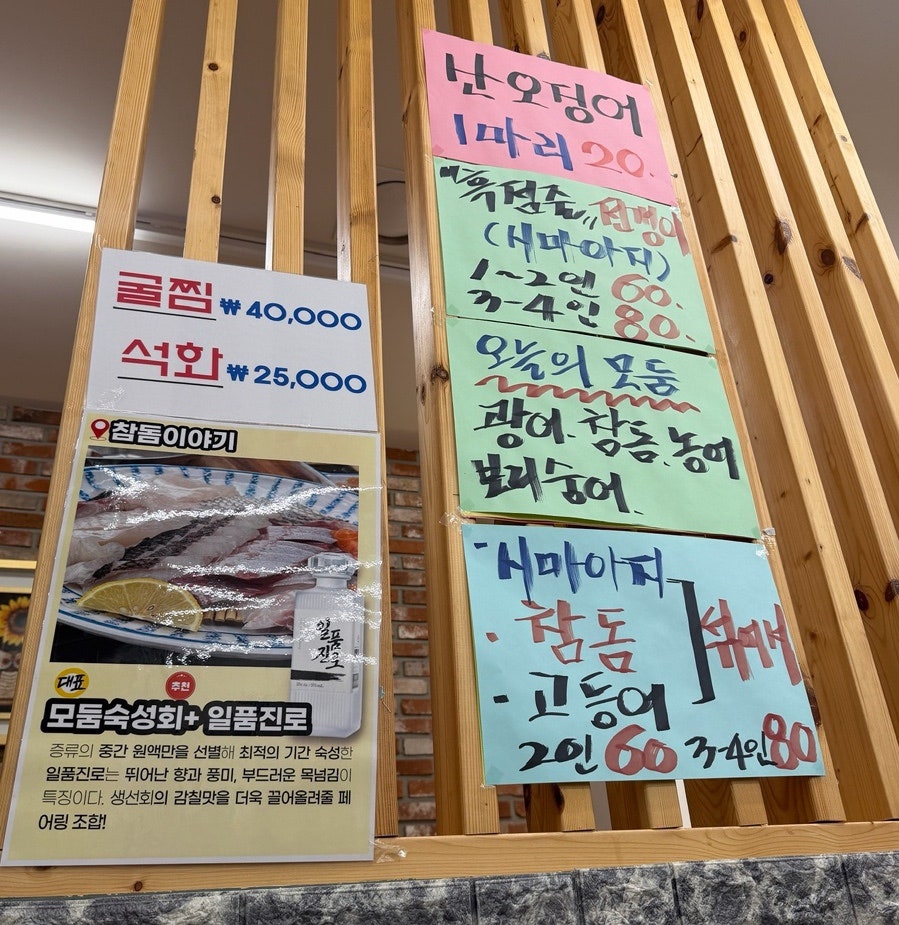 굴찜 ₩40,000
석화 ₩25,000
참돔이야기
일품
진로
대표
추천
모둠숙성회+ 일품진로
증류의 중간 원액만을 선별해 최적의 기간 숙성한
일품진로는 뛰어난 향과 풍미, 부드러운 목넘김이
특징이다. 생선회의 감칠맛을 더욱 끌어올려줄 페
어링 조합!
난오징어
1마리 20.
"흑점줄" 전갱이
(시마아지)
1~2인 60.
3-4인 80.
오늘의 모둠
광어. 참돔. 농어
보리숭어.
시마아지
· 참돔
· 고등어
섞어서
2인 60 3-4인 80